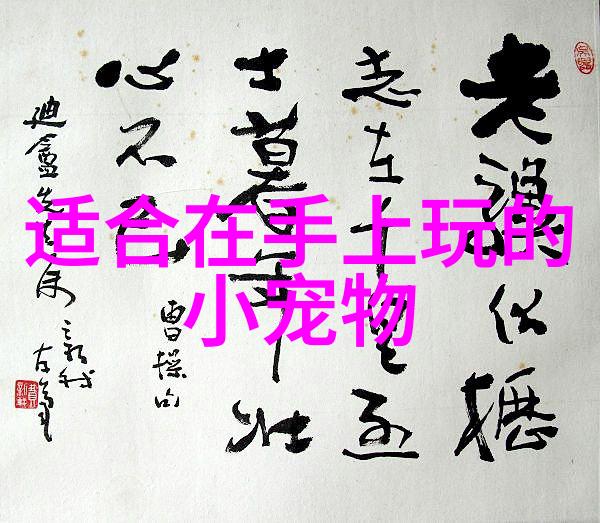 适合在手上玩的
小宠物
老驥伏櫪
志在千里烈
士暮年壮
心不已
曹操句